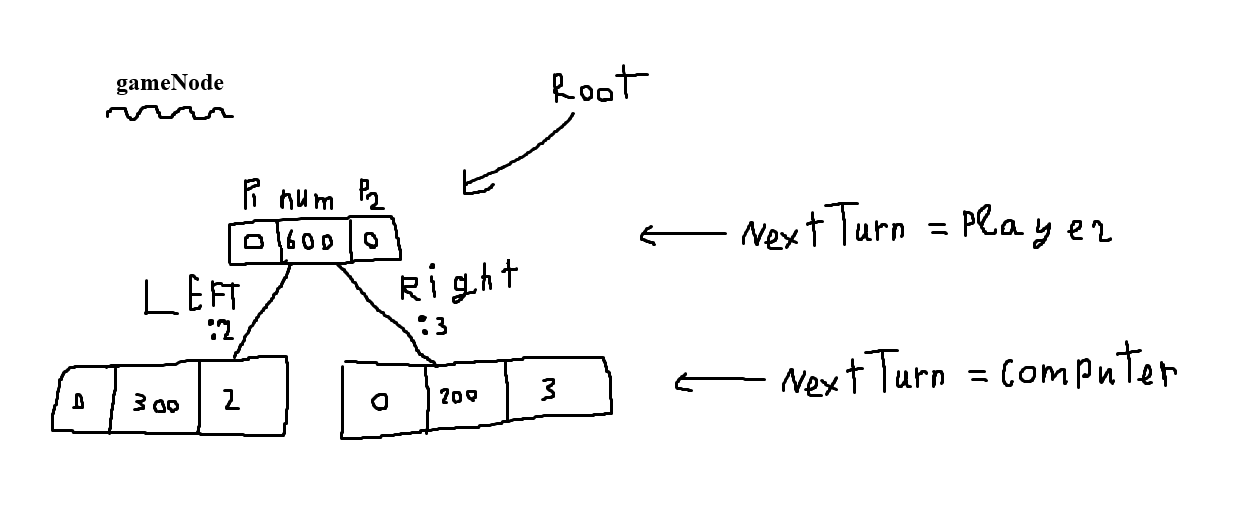 gameNode
Root
P1 num P2
0 600 0
← Next Turn = Player
LEFT
:2
Right
:3
0 300 2
0 200 3
← Next Turn = Computer